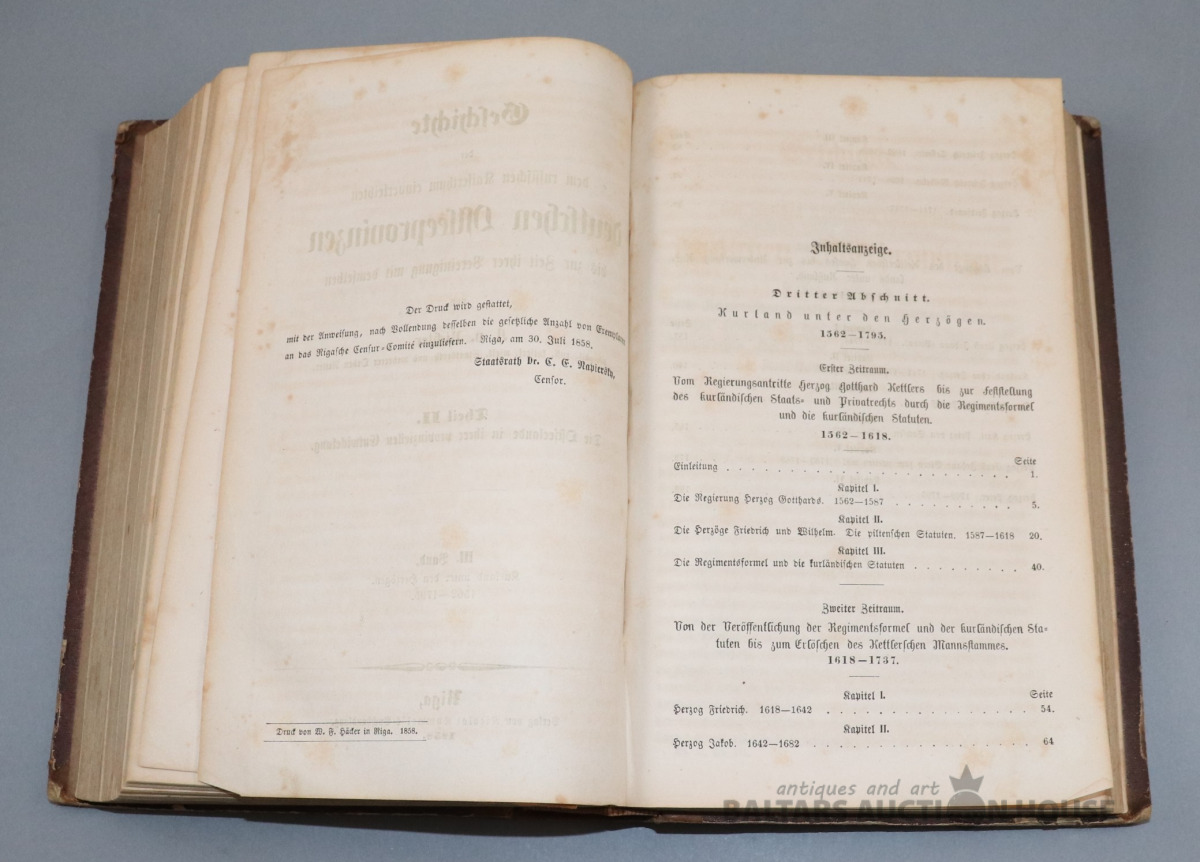 Der Druck wird gestattet,
mit der Anweisung, nach Vollendung desselben die gesetzliche Anzahl von Exemplaren
an das Rigasche Censur-Comité einzuliefern. Riga, am 30. Juli 1858.
Staatsrath Dr. C. E. Napiersky,
Censor.
Druck von W. F. Häcker in Riga. 1858.
Inhaltsanzeige.
Dritter Abschnitt.
Kurland unter den Herzögen.
1562—1795.
Erster Zeitraum.
Vom Regierungsantritte Herzog Gotthard Kettlers bis zur Feststellung
des kurländischen Staats- und Privatrechts durch die Regimentsformel
und die kurländischen Statuten.
1562—1618.
Seite
Einleitung . . . . . . . . . . . . . . . . . . . . . . . 1.
Kapitel I.
Die Regierung Herzog Gotthards. 1562—1587 . . . . . . . . . . 5.
Kapitel II.
Die Herzöge Friedrich und Wilhelm. Die piltenschen Statuten. 1587—1618 20.
Kapitel III.
Die Regimentsformel und die kurländischen Statuten . . . . . . . . . 40.
Zweiter Zeitraum.
Von der Veröffentlichung der Regimentsformel und der kurländischen Sta-
tuten bis zum Erlöschen des Kettlerschen Mannsstammes.
1618—1737.
Kapitel I. Seite
Herzog Friedrich. 1618—1642 . . . . . . . . . . . . . . . . 54.
Kapitel II.
Herzog Jakob. 1642—1682 . . . . . . . . . . . . . . . . . 64
antiques and art
BALTARS AUCTION HOUSE